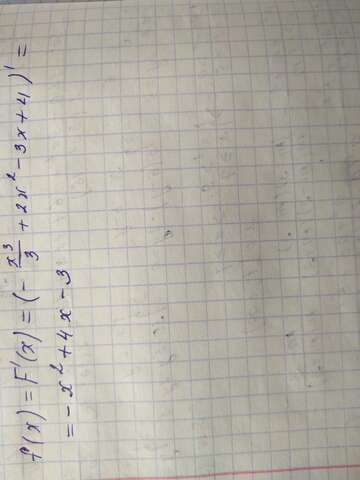 f(x) = F'(x) = (- x³/3 + 2x² - 3x + 4)' =
= - x² + 4x - 3